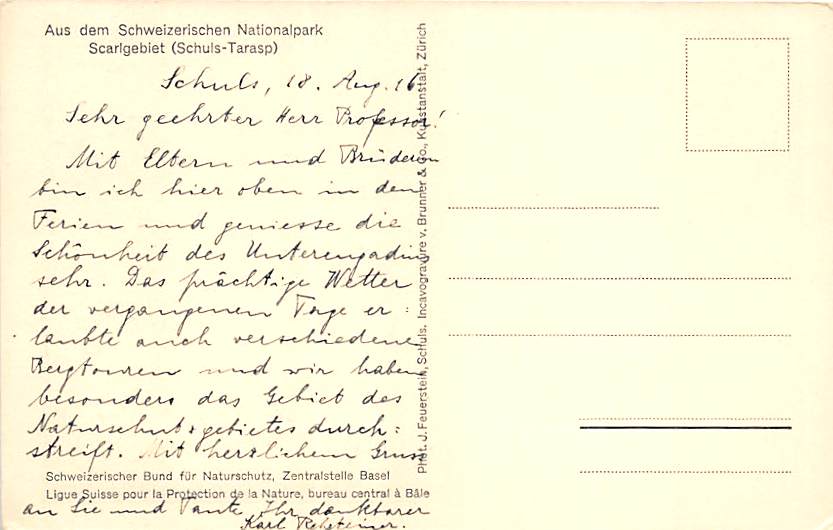 Aus dem Schweizerischen Nationalpark
Scarlgebiet (Schuls-Tarasp)
Schuls, 18. Aug. 16
Sehr geehrter Herr Professor!
Mit Eltern und Brüdern
bin ich hier oben in den
Ferien und geniesse die
Schönheit des Unterengadins
sehr. Das prächtige Wetter
der vergangenen Tage er=
laubte auch verschiedene
Bergtouren und wir haben
besonders das Gebiet des
Naturschutzgebietes durch=
streift. Mit herzlichem Gruss
Schweizerischer Bund für Naturschutz, Zentralstelle Basel
Ligue Suisse pour la Protection de la Nature, bureau central à Bâle
an Sie und Tante, Ihr dankbarer
Karl Rehsteiner.
Phot. J. Feuerstein, Schuls. Incavogravure v. Brunner & Co., Kunstanstalt, Zürich